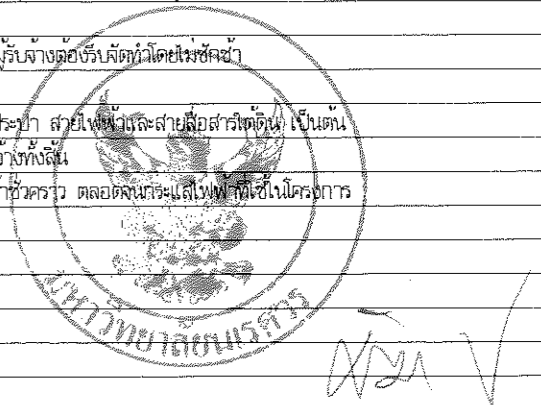 ผู้รับจ้างต้องรีบจัดทำโดยไม่ชักช้า
ระปา สายไฟฟ้าและสายสื่อสารใต้ดิน เป็นต้น
จ้างทั้งสิ้น
าชั่วคราว ตลอดจนกระแสไฟฟ้าที่ใช้ในโครงการ
มหาวิทยาลัยนเรศวร